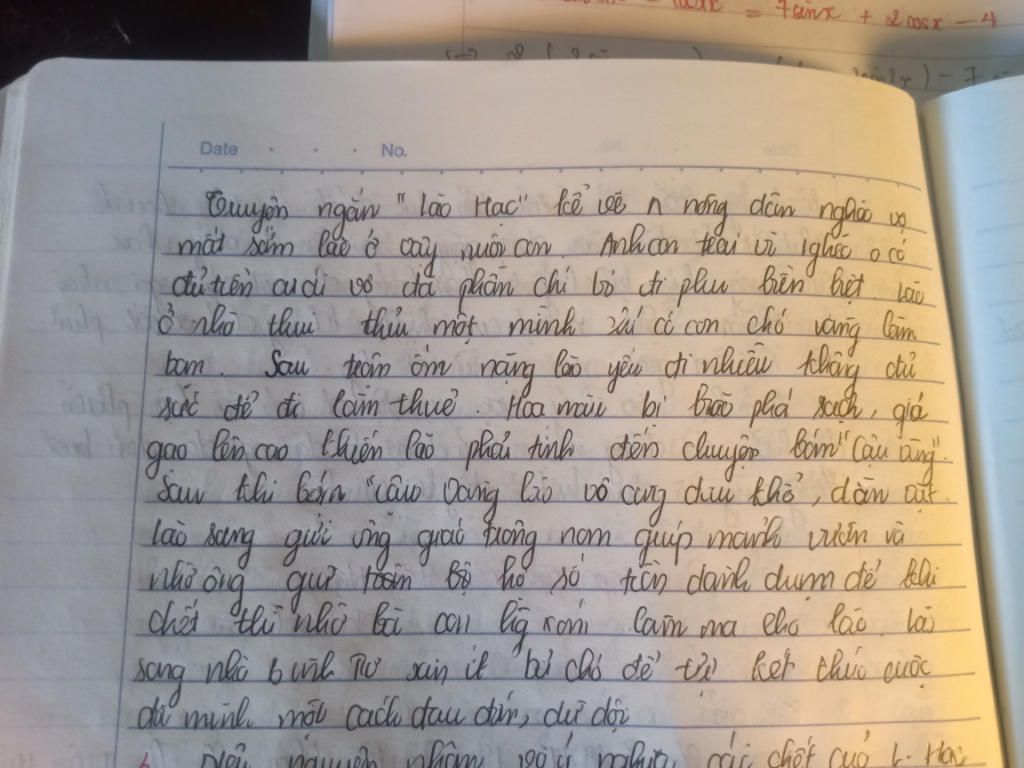 = 7sinx + 2cosx - 4
Date No.
Truyện ngắn "Lão Hạc" kể về n nông dân nghèo vợ
mất sớm lão ở vậy nuôi con. Anh con trai vì nghèo o có
đủ tiền cưới vợ đã phẫn chí bỏ đi phu biền biệt. Lão
ở nhà thui thủi một minh với có con chó vàng làm
bạn. Sau trận ốm nặng lão yếu đi nhiều không đủ
sức để đi làm thuê. Hoa màu bị bão phá sạch, giá
gạo lên cao khiến lão phải tính đến chuyện bán "Cậu àng".
Sau khi bán "cậu Vàng lão vô cùng đau khổ, dằn vặt.
lão sang gửi ông giáo trông nom giúp mảnh vườn và
nhờ ông gửi hộ số tiền dành dụm để khi
chết thì nhờ bà con lág xóm làm ma cho lão. Lão
sang nhà binh Tư xin ít bả chó để tự kết thúc cuộc
đời mình một cách đau đớn, dữ dội
Nêu nguyên nhân và ý nghĩa các chết của L. Hạc